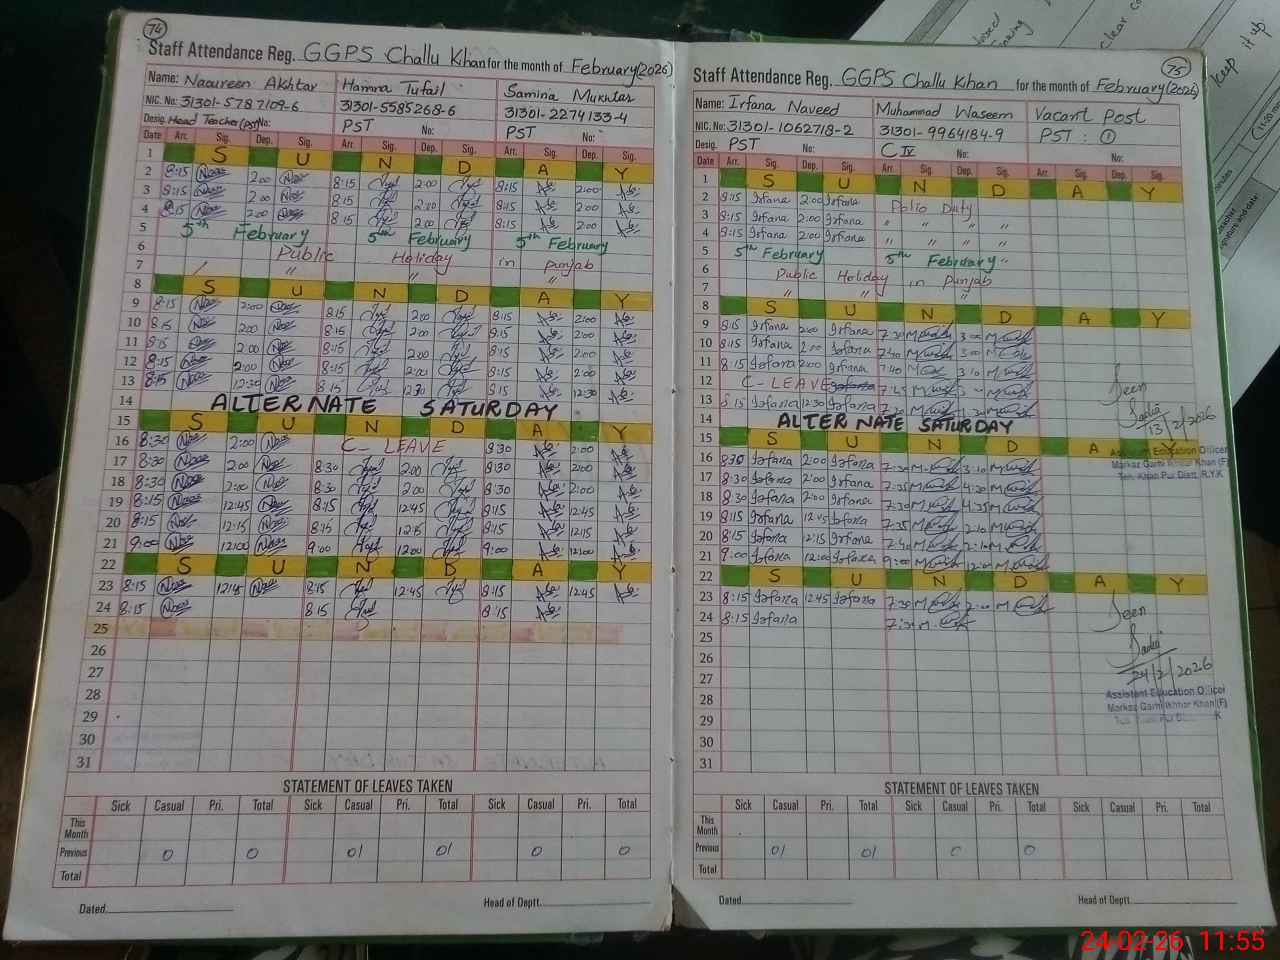 74
Staff Attendance Reg. GGPS Challu Khan for the month of February(2026)
Name: Naoureen Akhtar Hamna Tufail Samina Mukhtar
NIC. No: 31301-5787109-6 31301-5585268-6 31301-2274133-4
Desig. Head Teacher(PST) No: PST No: PST No:
Date Arr. Sig. Dep. Sig. Arr. Sig. Dep. Sig. Arr. Sig. Dep. Sig.
1 S U N D A Y
2 8:15 2:00 8:15 2:00 8:15 2:00
3 8:15 2:00 8:15 2:00 8:15 2:00
4 8:15 2:00 8:15 2:00 8:15 2:00
5 5th February 5th February 5th February
6 Public Holiday in Punjab
7 " " "
8 S U N D A Y
9 8:15 2:00 8:15 2:00 8:15 2:00
10 8:15 2:00 8:15 2:00 8:15 2:00
11 8:15 2:00 8:15 2:00 8:15 2:00
12 8:15 2:00 8:15 2:00 8:15 2:00
13 8:15 12:30 8:15 12:30 8:15 12:30
14 ALTERNATE SATURDAY
15 S U N D A Y
16 8:30 2:00 C- LEAVE 8:30 2:00
17 8:30 2:00 8:30 2:00 8:30 2:00
18 8:30 2:00 8:30 2:00 8:30 2:00
19 8:15 12:45 8:15 12:45 8:15 12:45
20 8:15 12:15 8:15 12:15 8:15 12:15
21 9:00 12:00 9:00 12:00 9:00 12:00
22 S U N D A Y
23 8:15 12:45 8:15 12:45 8:15 12:45
24 8:15 8:15 8:15
25
26
27
28
29
30
31
STATEMENT OF LEAVES TAKEN
Sick Casual Pri. Total Sick Casual Pri. Total Sick Casual Pri. Total
This Month
Previous 0 0 01 01 0 0
Total
Dated Head of Deptt.
75
Staff Attendance Reg. GGPS Challu Khan for the month of February(2026)
Name: Irfana Naveed Muhammad Waseem Vacant Post
NIC. No: 31301-1062718-2 31301-9964184-9 PST : 1
Desig. PST No: C IV No: No:
Date Arr. Sig. Dep. Sig. Arr. Sig. Dep. Sig. Arr. Sig. Dep. Sig.
1 S U N D A Y
2 8:15 Irfana 2:00 Irfana Polio Duty
3 8:15 Irfana 2:00 Irfana " " " "
4 8:15 Irfana 2:00 Irfana " " " "
5 5th February 5th February "
6 Public Holiday in Punjab
7 " " "
8 S U N D A Y
9 8:15 Irfana 2:00 Irfana 7:30 3:00
10 8:15 Irfana 2:00 Irfana 7:40 3:00
11 8:15 Irfana 2:00 Irfana 7:40 3:10
12 C- LEAVE Irfana 7:45
13 8:15 Irfana 12:30 Irfana 7:20 1:30
14 ALTERNATE SATURDAY
15 S U N D A Y
16 8:30 Irfana 2:00 Irfana 7:30 3:10
17 8:30 Irfana 2:00 Irfana 7:35 4:20
18 8:30 Irfana 2:00 Irfana 7:30 4:35
19 8:15 Irfana 12:45 Irfana 7:35 2:10
20 8:15 Irfana 12:15 Irfana 7:40 2:10
21 9:00 Irfana 12:00 Irfana 9:00 12:00
22 S U N D A Y
23 8:15 Irfana 12:45 Irfana 7:30 2:00
24 8:15 Irfana
25
26
27
28
29
30
31
Seen
13/2/2026
Assistant Education Officer
Markaz Garhi Ikhtiar Khan (F)
Teh. Khan Pur Distt. R.Y.K
Seen
24/2/2026
Assistant Education Officer
Markaz Garhi Ikhtiar Khan (F)
STATEMENT OF LEAVES TAKEN
Sick Casual Pri. Total Sick Casual Pri. Total Sick Casual Pri. Total
This Month
Previous 01 01 0 0
Total
Dated Head of Deptt.
clear
keep it up
24-02-26 11:55